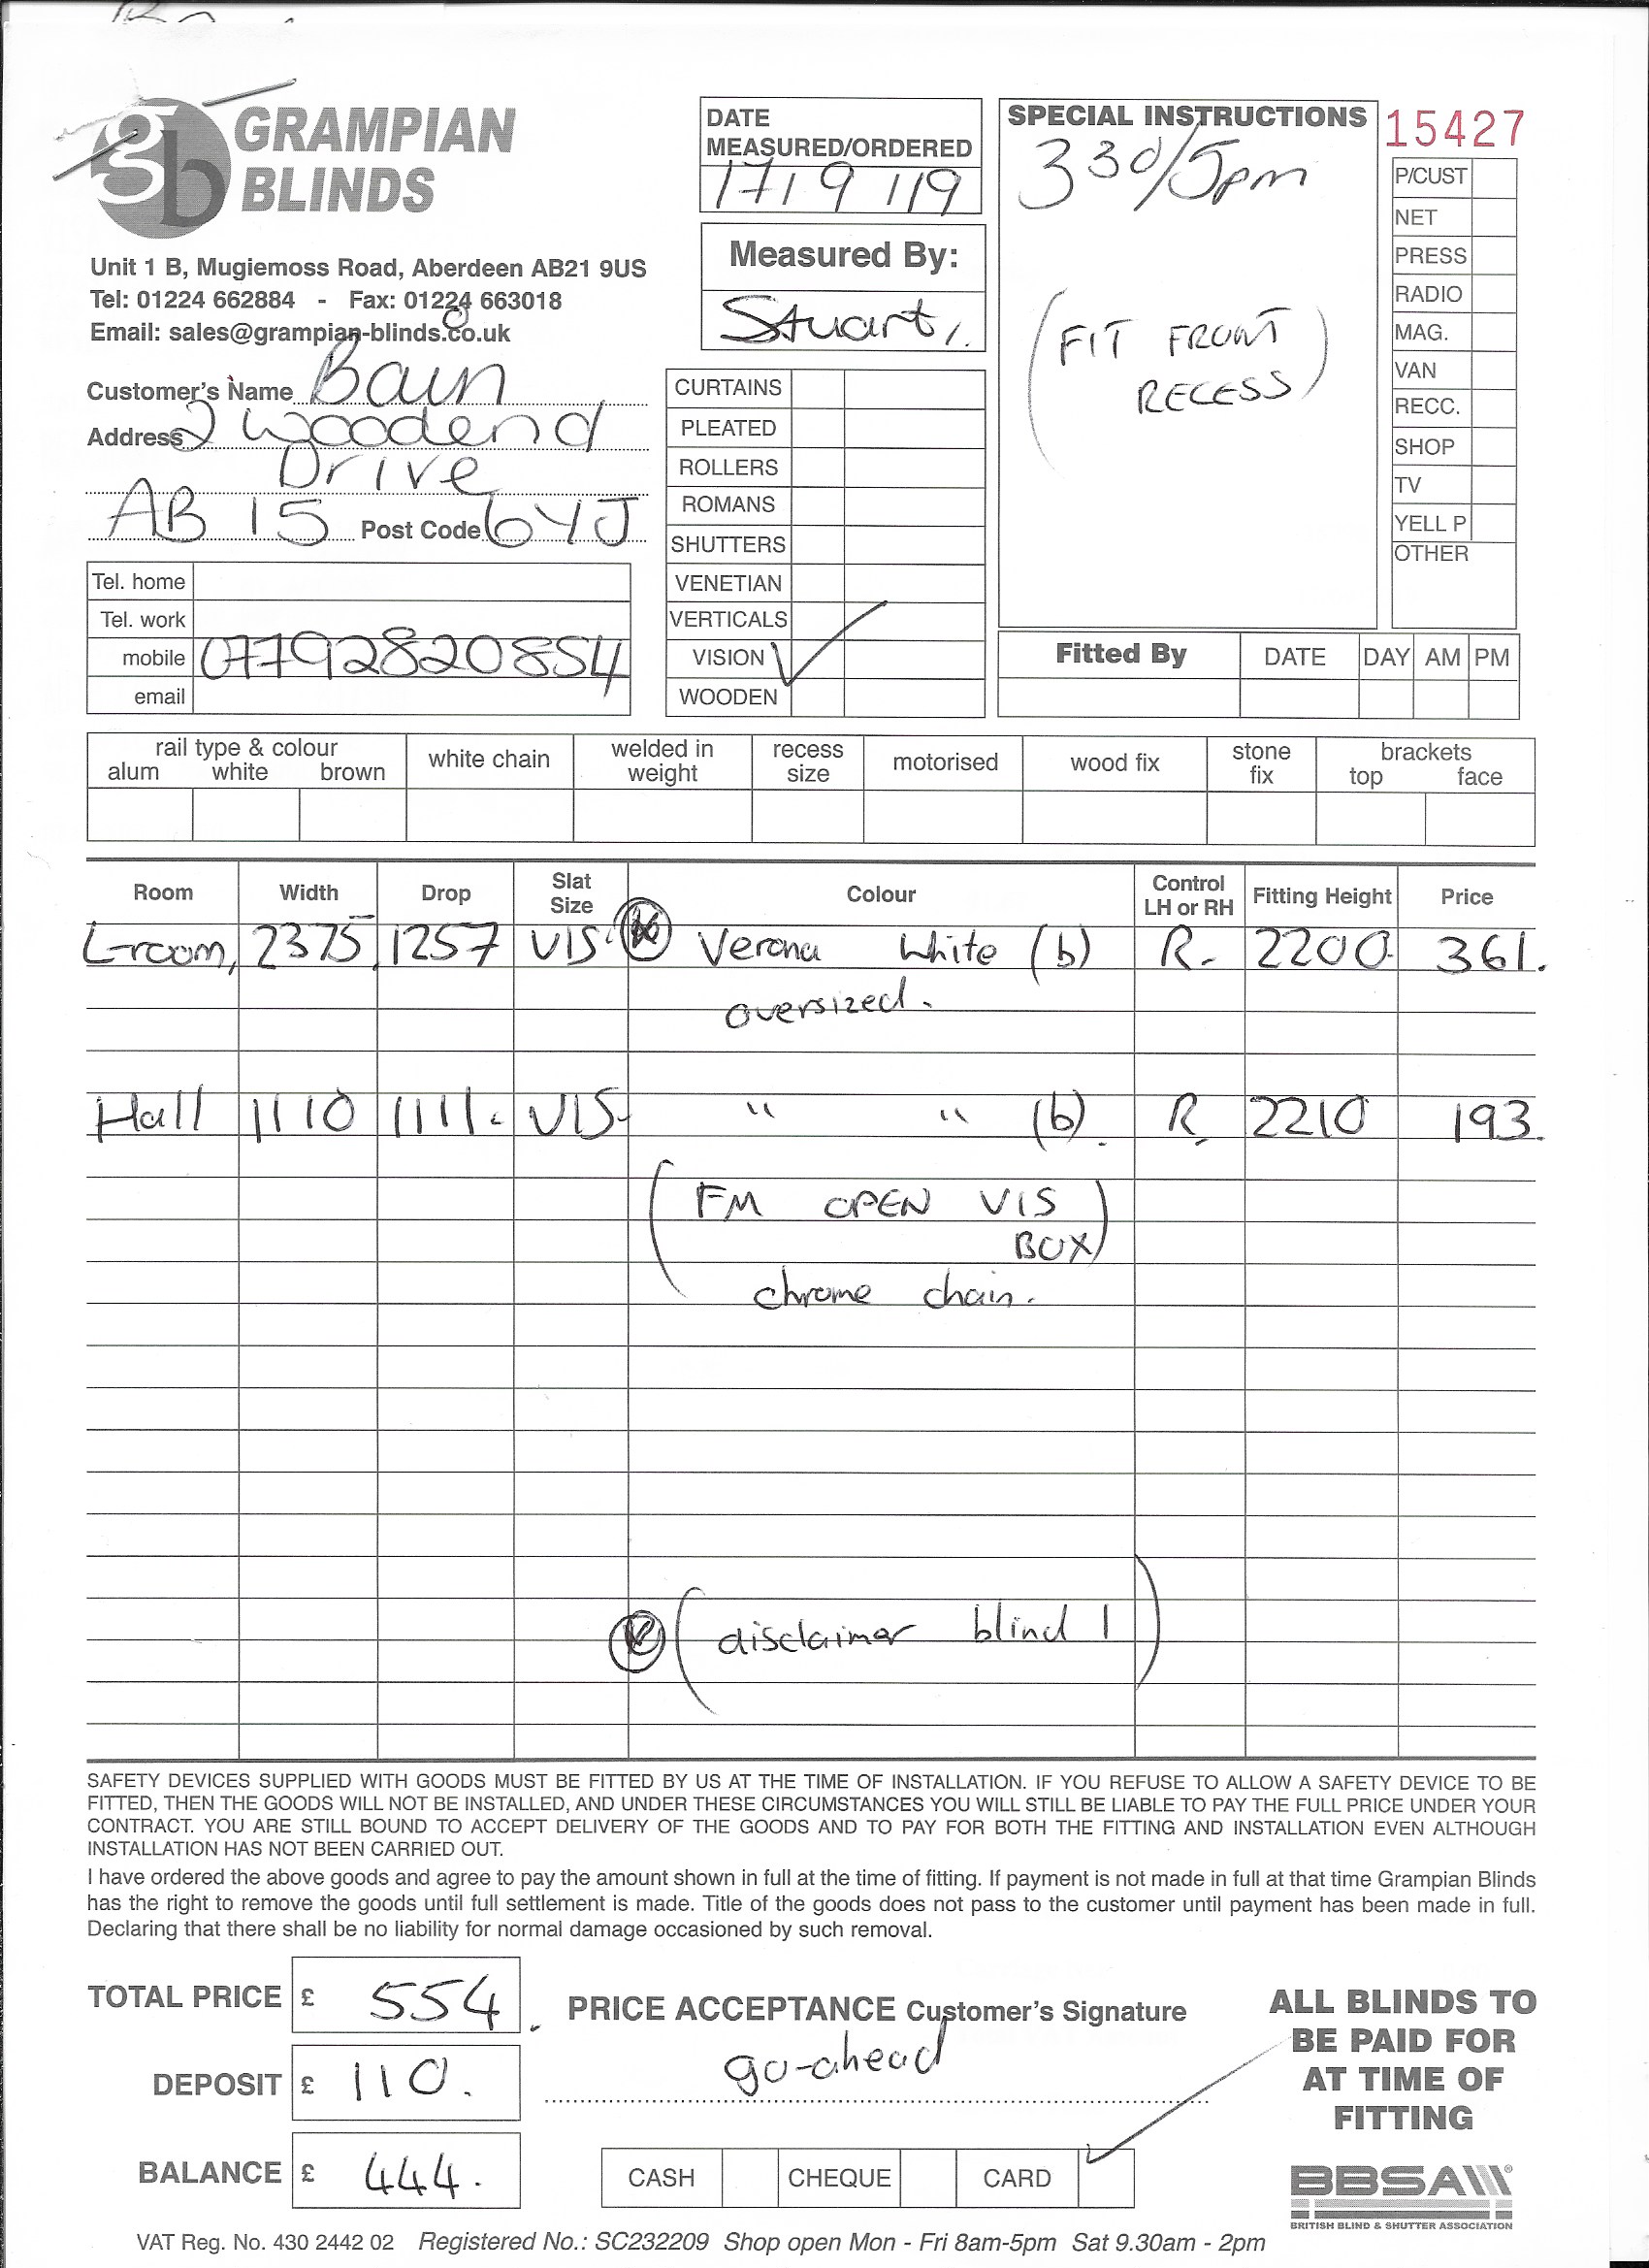 GRAMPIAN
BLINDS
gb
Unit 1 B, Mugiemoss Road, Aberdeen AB21 9US
Tel: 01224 662884 - Fax: 01224 663018
Email: sales@grampian-blinds.co.uk
Customer's Name Bain
Address 2 Woodend
Drive
AB 15 Post Code 6YJ
Tel. home
Tel. work
mobile 07792820854
email
DATE
MEASURED/ORDERED
17/9/19
Measured By:
Stuart
CURTAINS
PLEATED
ROLLERS
ROMANS
SHUTTERS
VENETIAN
VERTICALS
VISION ✓
WOODEN
SPECIAL INSTRUCTIONS
330/5pm
(FIT FRONT
RECESS)
15427
P/CUST
NET
PRESS
RADIO
MAG.
VAN
RECC.
SHOP
TV
YELL P
OTHER
Fitted By DATE DAY AM PM
rail type & colour white chain welded in weight recess size motorised wood fix stone fix brackets
alum white brown top face
Room Width Drop Slat Size Colour Control LH or RH Fitting Height Price
L-room, 2375 1257 VIS. Verona White (b) R. 2200 361.
oversized.
Hall 1110 1111. VIS- " " (b). R. 2210 193.
(FM OPEN VIS
BOX)
chrome chain.
(disclaimer blind 1)
SAFETY DEVICES SUPPLIED WITH GOODS MUST BE FITTED BY US AT THE TIME OF INSTALLATION. IF YOU REFUSE TO ALLOW A SAFETY DEVICE TO BE
FITTED, THEN THE GOODS WILL NOT BE INSTALLED, AND UNDER THESE CIRCUMSTANCES YOU WILL STILL BE LIABLE TO PAY THE FULL PRICE UNDER YOUR
CONTRACT. YOU ARE STILL BOUND TO ACCEPT DELIVERY OF THE GOODS AND TO PAY FOR BOTH THE FITTING AND INSTALLATION EVEN ALTHOUGH
INSTALLATION HAS NOT BEEN CARRIED OUT.
I have ordered the above goods and agree to pay the amount shown in full at the time of fitting. If payment is not made in full at that time Grampian Blinds
has the right to remove the goods until full settlement is made. Title of the goods does not pass to the customer until payment has been made in full.
Declaring that there shall be no liability for normal damage occasioned by such removal.
TOTAL PRICE £ 554.
DEPOSIT £ 110.
BALANCE £ 444.
PRICE ACCEPTANCE Customer's Signature
go-ahead
CASH CHEQUE CARD ✓
ALL BLINDS TO
BE PAID FOR
AT TIME OF
FITTING
BBSA
BRITISH BLIND & SHUTTER ASSOCIATION
VAT Reg. No. 430 2442 02 Registered No.: SC232209 Shop open Mon - Fri 8am-5pm Sat 9.30am - 2pm